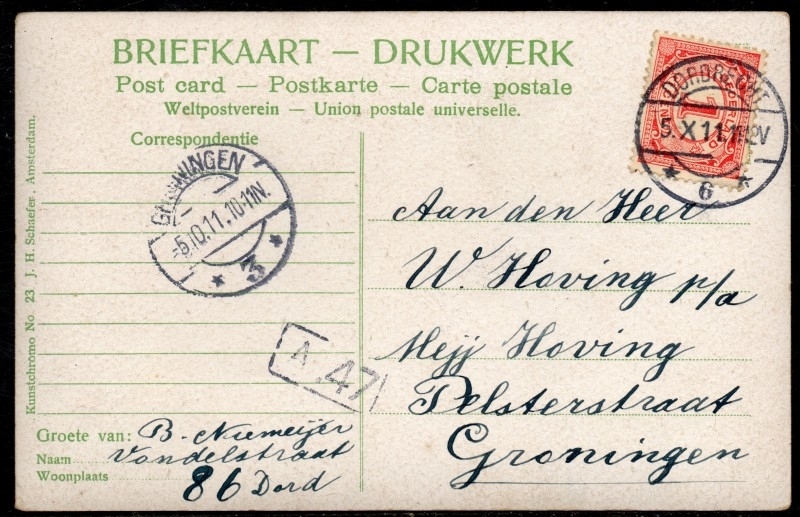 BRIEFKAART — DRUKWERK
Post card — Postkarte — Carte postale
Weltpostverein — Union postale universelle.
Correspondentie
DORDRECHT
5.X11.11-12V
6
GRONINGEN
-5.10.11.10-11N.
3
Aan den Heer
W. Hoving p/a
Mejj Hoving
Pelsterstraat
Groningen
A. 47
Groete van: B. Niemeijer
Naam Vondelstraat
Woonplaats 86 Dord
Kunstchromo No 23 J. H. Schaefer, Amsterdam.